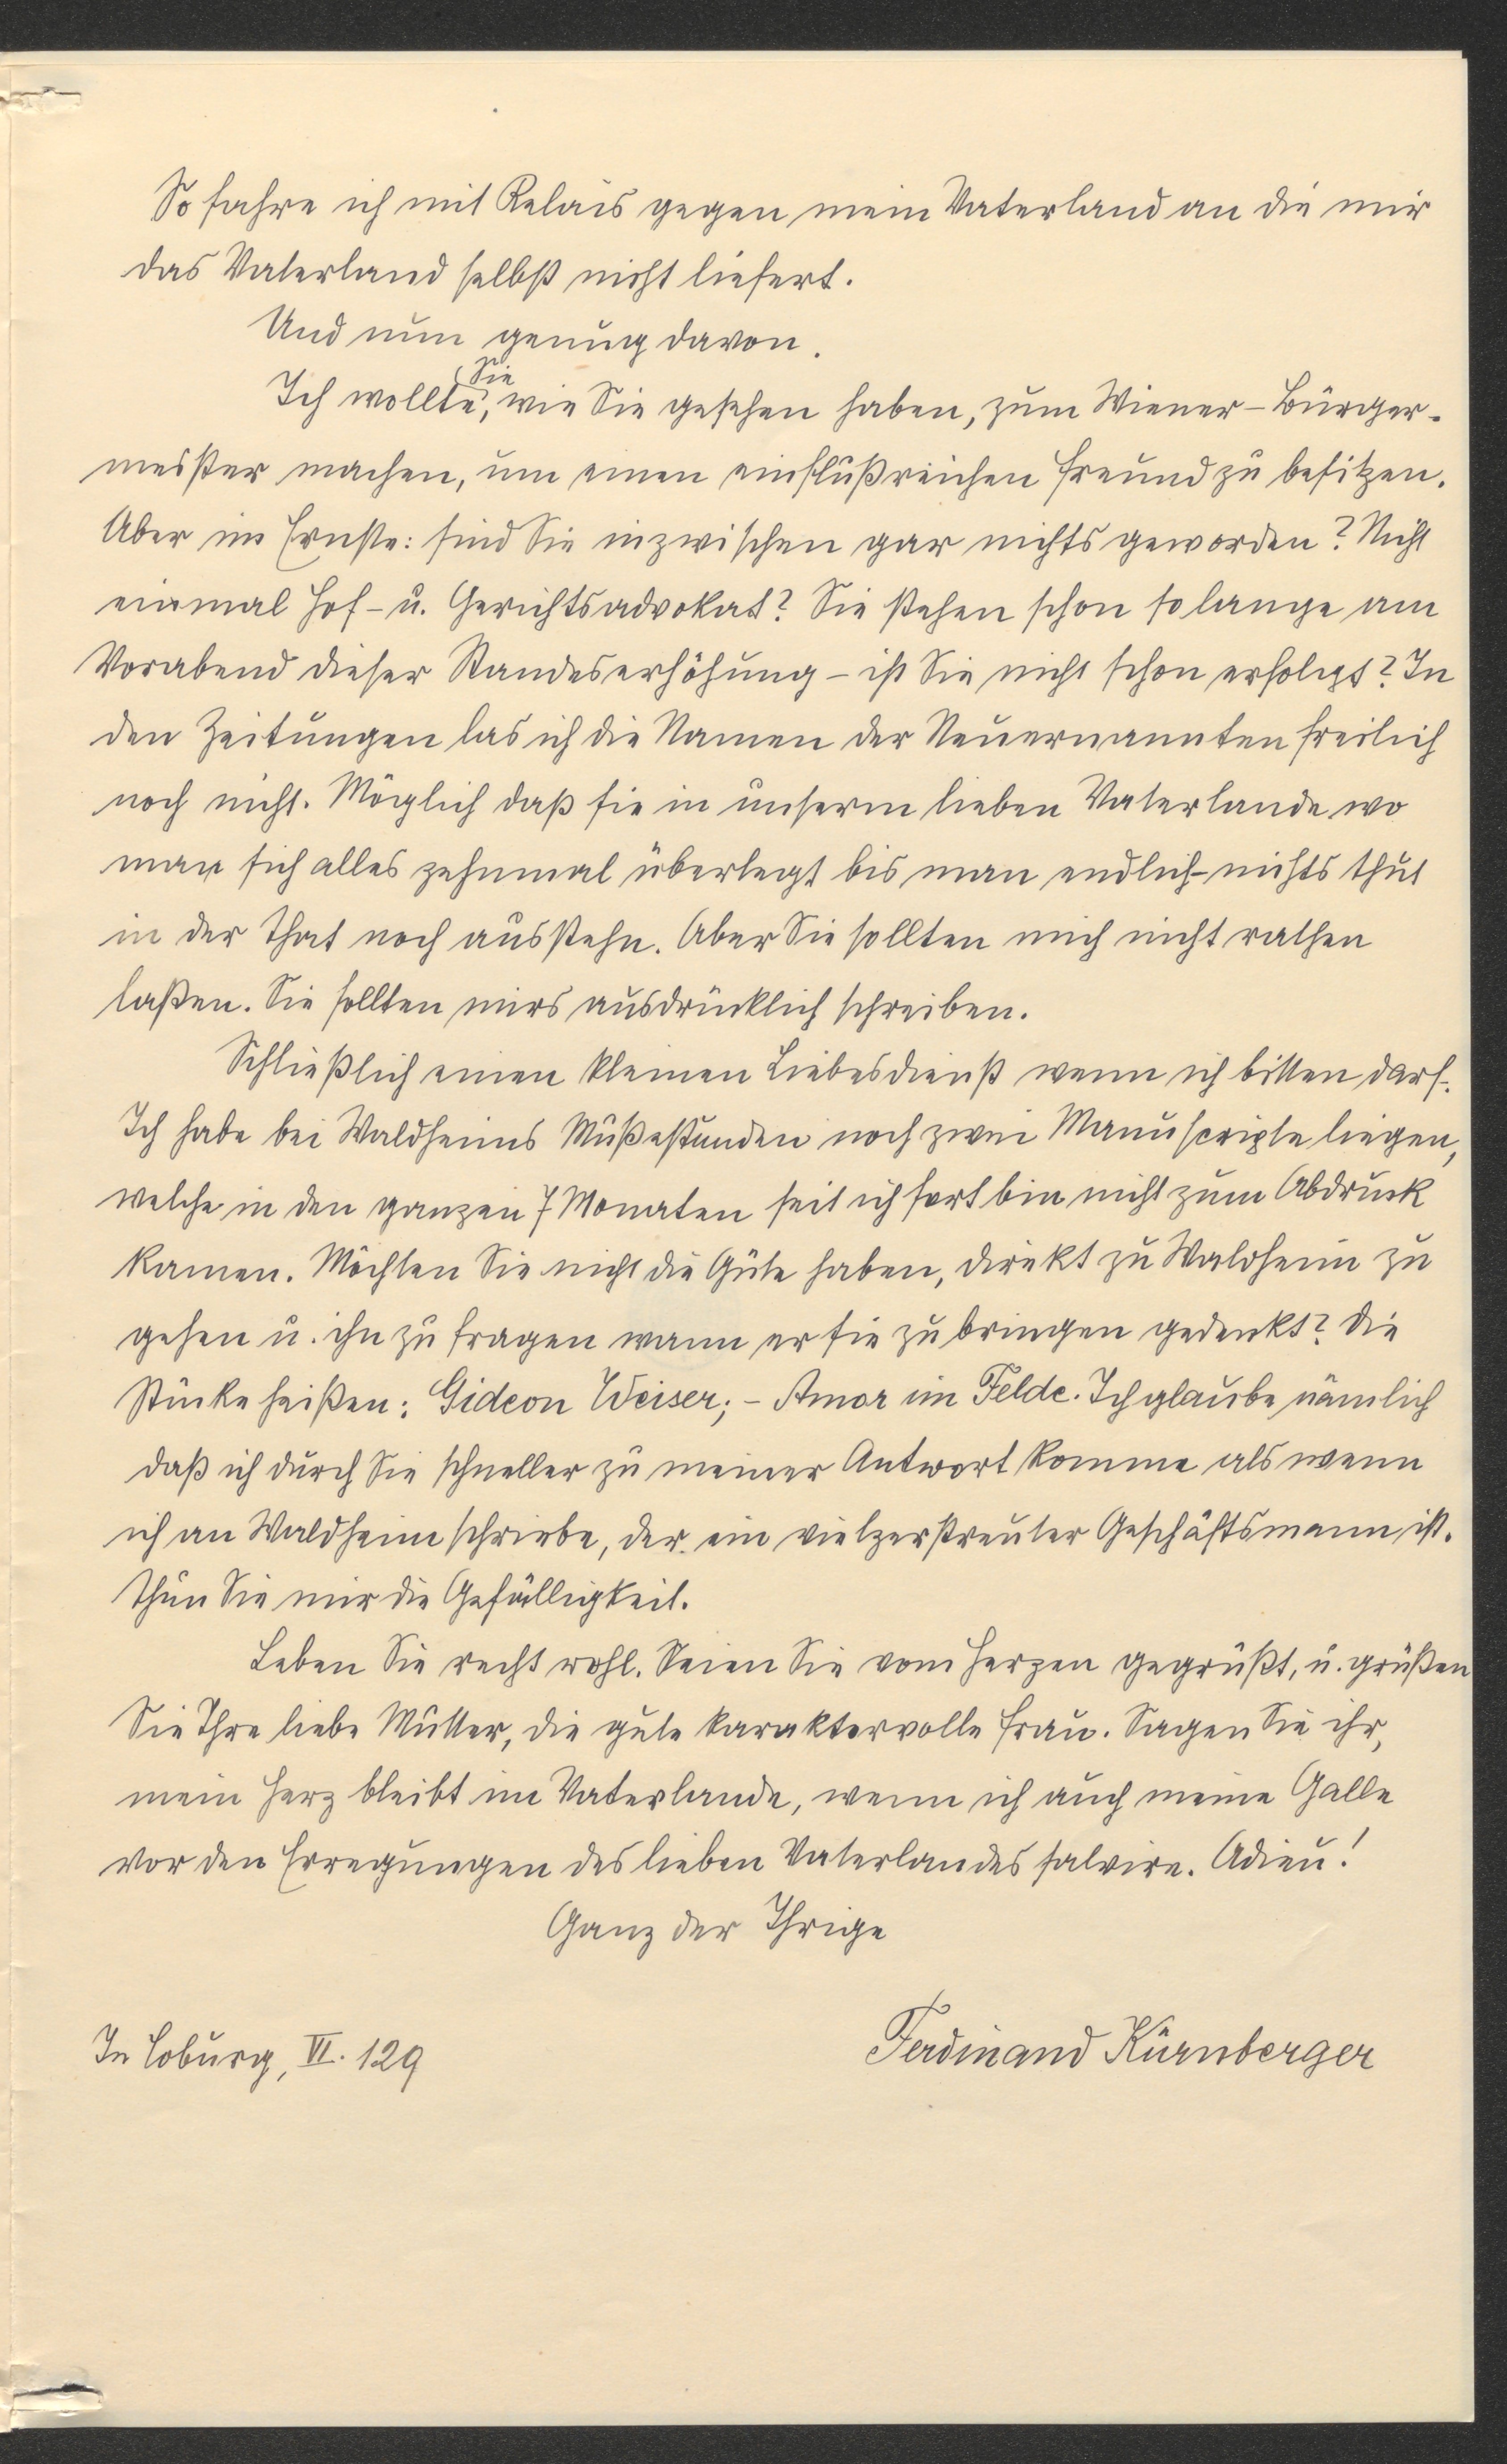 So fahre ich mit Relais gegen mein Vaterland an die mir
das Vaterland selbst nicht liefert.
Und nun genug davon.
Ich wollte Sie, wie Sie gesehen haben, zum Wiener-Bürger-
meister machen, um einen einflußreichen Freund zu besitzen.
Aber im Ernste: sind Sie inzwischen gar nichts geworden? Nicht
einmal Hof- u. Gerichtsadvokat? Sie stehen schon so lange am
Vorabend dieser Standeserhöhung – ist Sie nicht schon erfolgt? In
den Zeitungen las ich die Namen der Neuernannten freilich
noch nicht. Möglich daß sie in unserm lieben Vaterlande wo
man sich alles zehnmal überlegt bis man endlich – nichts thut
in der That noch ausstehn. Aber Sie sollten mich nicht rathen
laßen. Sie sollten mirs ausdrücklich schreiben.
Schließlich einen kleinen Liebesdienst wenn ich bitten darf.
Ich habe bei Waldheims Mußestunden noch zwei Manuscripte liegen,
welche in den ganzen 7 Monaten seit ich fort bin nicht zum Abdruck
kamen. Möchten Sie nicht die Güte haben, direkt zu Waldheim zu
gehen u. ihn zu fragen wann er sie zu bringen gedenkt? Die
Stücke heißen: Gideon Weiser; – Amor im Felde. Ich glaube nämlich
daß ich durch Sie schneller zu meiner Antwort komme als wenn
ich an Waldheim schriebe, der ein vielzerstreuter Geschäftsmann ist.
Thun Sie mir die Gefälligkeit.
Leben Sie recht wohl. Seien Sie vom Herzen gegrüßt, u. grüßen
Sie Ihre liebe Mutter, die gute karaktervolle Frau. Sagen Sie ihr,
mein Herz bleibt im Vaterlande, wenn ich auch meine Galle
vor den Erregungen des lieben Vaterlandes salvire. Adieu!
Ganz der Ihrige
Ferdinand Kürnberger
In Coburg, VI. 129